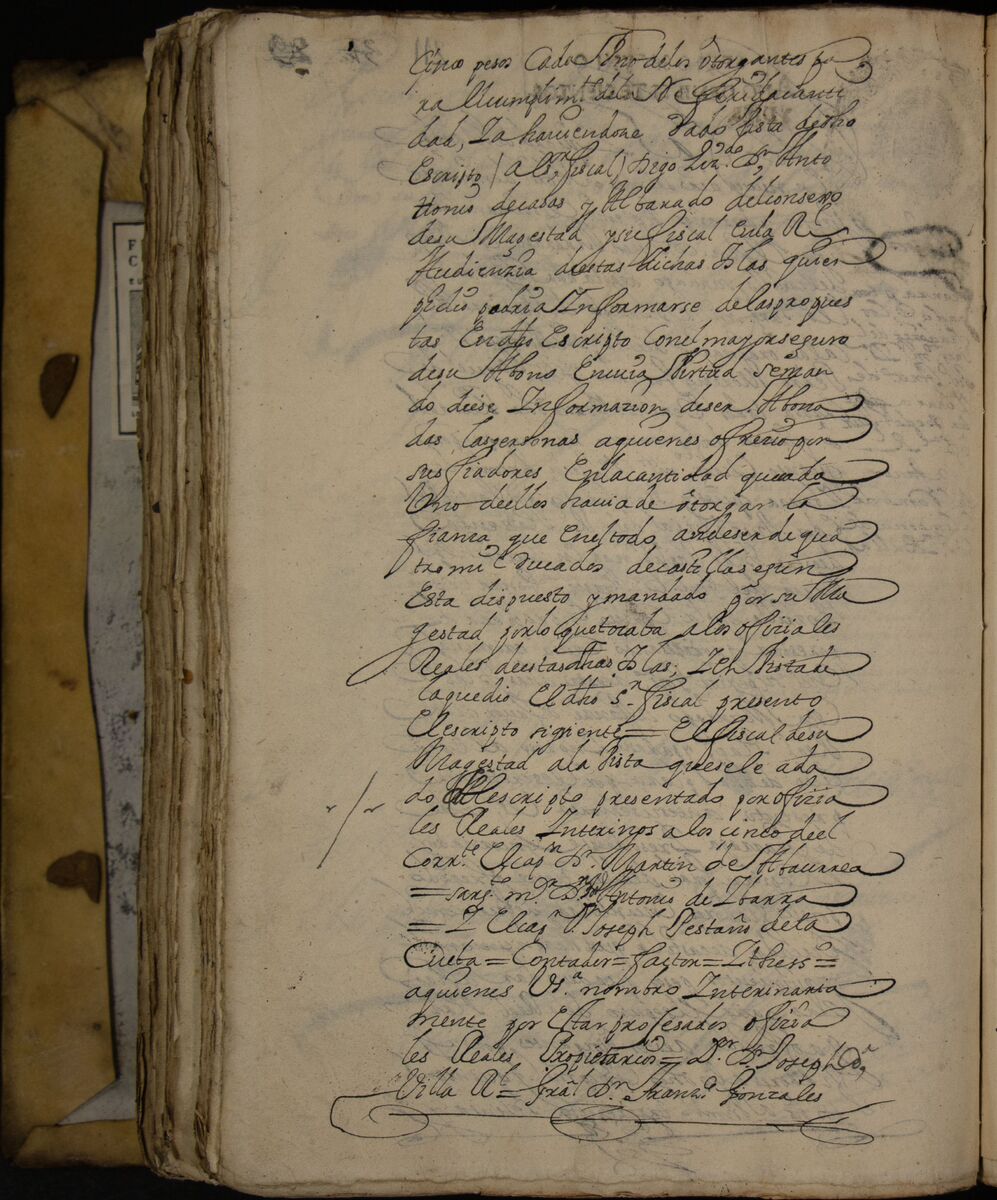 Cinco pesos Cada Uno delos otorgantes pa
ra el cumplimto dela Rda Cantti
dad, Ya haviendose dado Vista dedho
Escripto / Al Sr fiscal / Digo Lizdo Dn Anto
tonio decasas y Albarado delconsexo
desu Magestad ysu fiscal enla Rl
Audienzia destas dichas Yslas quien
pidio podria Ynformarse delaspropues
tas En dho Escripto Conelmayorseguro
desu Abono Encuia Virtud seman
do diese Ynformazion deser Abona
das laspersonas aquienes ofrezio por
sus fiadores Enlacantidad quecada
Uno deellos haviade otorgar la
fianza que Eneltodo andeser de qua
tro mil Ducados decastilla segun
Esta dispuesto ymandado por su Ma
gestad porlo quetocaba alos ofiziales
Reales deestas dhas Yslas; Yen Vistade
laquedio El dho Sr fiscal presento
Elescripto sigiente = El fiscal desu
Magestad ala Vista quesele ada
do del escripto presentado por ofizia
les Reales Interinos alos cinco deel
Corrte Elcapn Dn Martin de Abaurrea
= sargto mor Dn Antonio de Ybarra
= Y Elcapn D Joseph Pestaño dela
Cueba = Contador = factor = Ythess =
aquienes Vsa nombro Ynterinaria
mente por Estar prosesados ofizia
les Reales Propietarios = Dor Dn Joseph de
Villa Rl = Gral Dn Franzco Gonzales